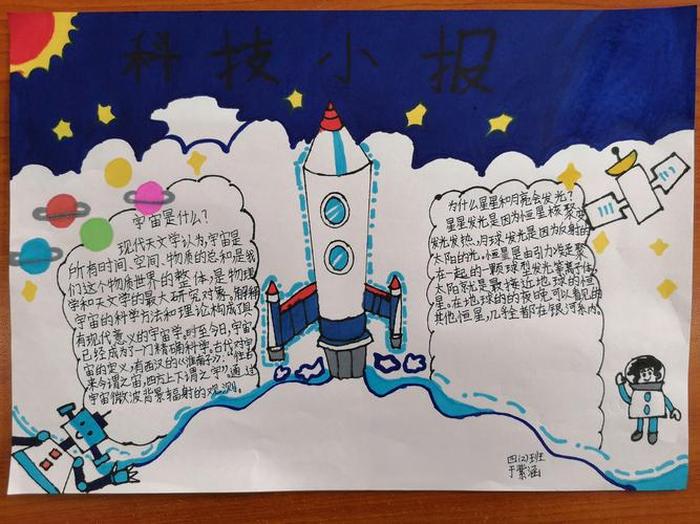 科技小报
宇宙是什么?
现代天文学认为,宇宙是
所有时间、空间、物质的总和,是我
们这个物质世界的整体,是物理
学和天文学的最大研究对象,解释
宇宙的科学方法和理论构成了具
有现代意义的宇宙学。时至今日,宇宙学
已经成为了一门精确科学。古代对宇
宙的定义,有西汉的《淮南子》,“往古
来今谓之宙,四方上下谓之宇”。通过
宇宙微波背景辐射的观测。
为什么星星和月亮会发光?
星星发光是因为恒星核聚变
发光发热,月球发光是因为反射的
太阳的光。恒星是由引力凝聚
在一起的一颗球型发光等离子体,
太阳就是最接近地球的恒
星。在地球的的夜晚可以看见的
其他恒星,几乎全都在银河系内。
四(2)班
于紫涵